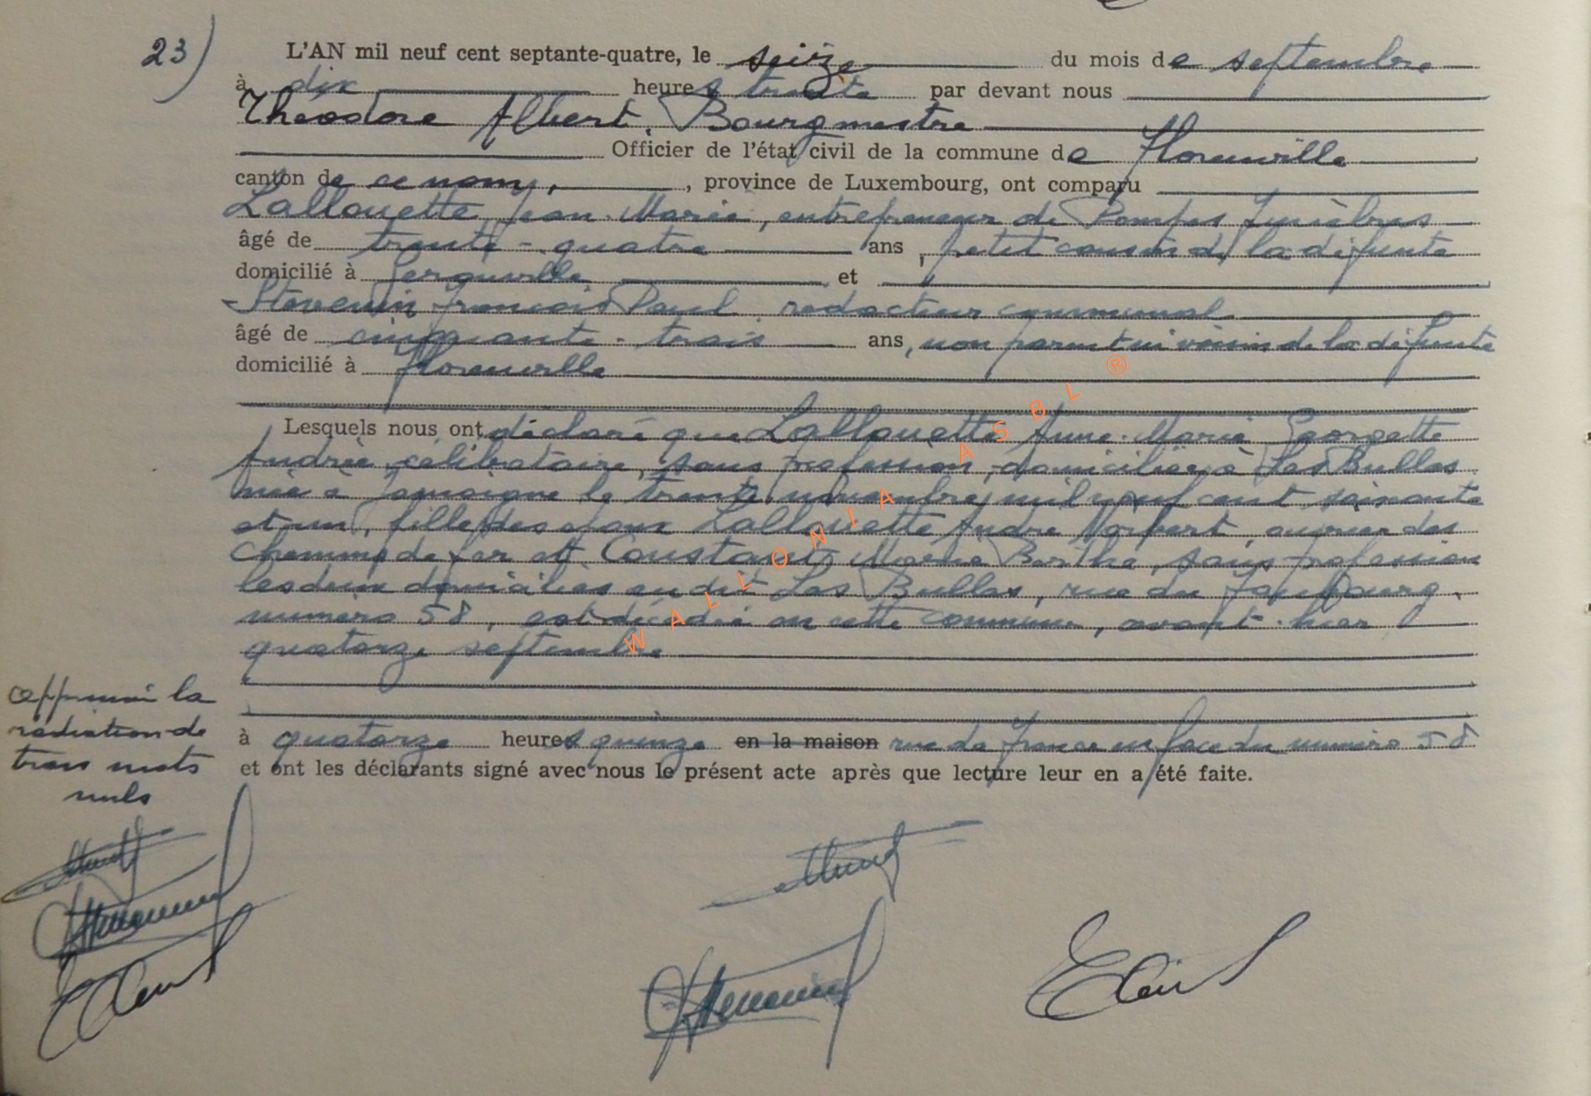 23) L'AN mil neuf cent septante-quatre, le seize du mois de septembre
à dix heures trente par devant nous
Théodore Albert, Bourgmestre
Officier de l'état civil de la commune de Florenville
canton de ce nom, , province de Luxembourg, ont comparu
Lallouette Jean-Marie, entrepreneur de Pompes Funèbres
âgé de trente-quatre ans, petit cousin de la défunte
domicilié à Gérouville et
François Paul, rédacteur communal
âgé de cinquante-trois ans, non parent ni voisin de la défunte
domicilié à Florenville
Lesquels nous ont déclaré que Lallouette Anne-Marie Georgette
Andrée, célibataire, sans profession, domiciliée à Les Bulles
née à Jamoigne le trente novembre mil neuf cent soixante
et un, fille des époux Lallouette André Norbert, ouvrier des
Chemins de fer et Constant Marie Berthe, sans profession
les deux domiciliés au dit Les Bulles, rue du Faubourg,
numéro 58, est décédée en cette commune, avant-hier
quatorze septembre
à quatorze heures quinze en la maison rue de France en face du numéro 58
et ont les déclarants signé avec nous le présent acte après que lecture leur en a été faite.
Approuvé la
radiation de
trois mots
nuls
WALLONIA ASBL ®